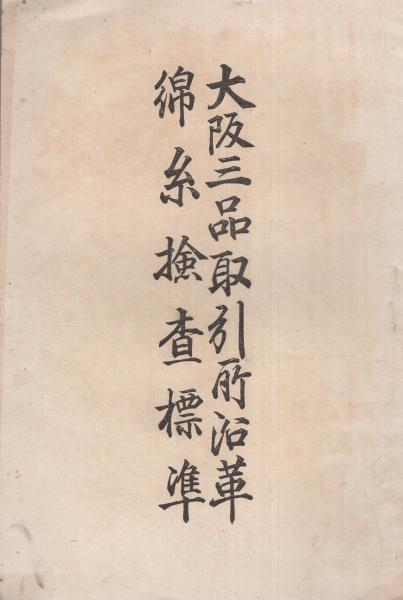 大阪三品取引所沿革
綿糸検査標準